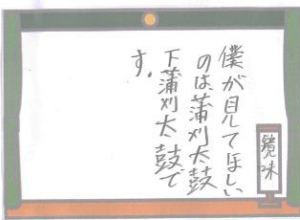 僕が見てほしい
のは、蒲刈太鼓
下蒲刈太鼓で
す。